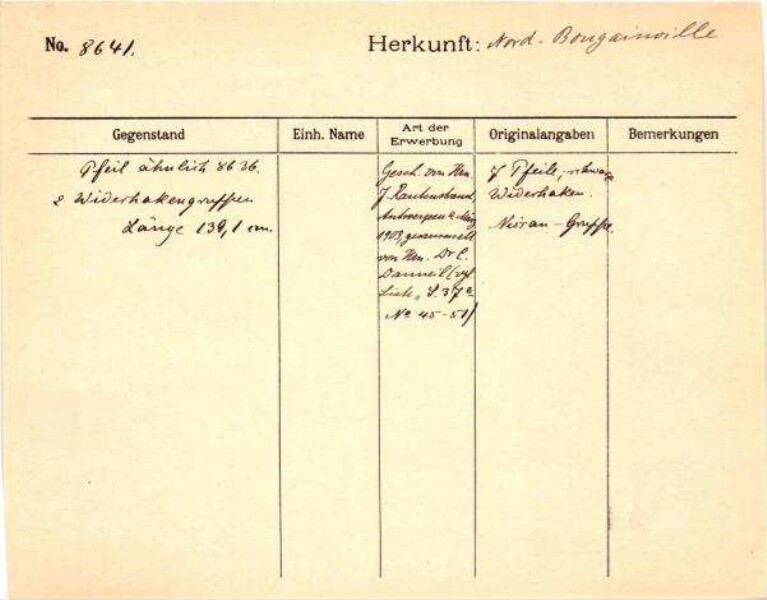 No. 8641. Herkunft: Nord-Bougainville
Gegenstand Einh. Name Art der Erwerbung Originalangaben Bemerkungen
Pfeil ähnlich 8636.
2 Widerhakengruppen
Länge 139,1 cm.
Gesch. von Hrn.
J. Rautenstrauch,
Antwerpen
1903, gesammelt
von Hrn. Dr C.
Danneil (vgl
Liste, S. 37a
No 45-51)
7 Pfeile, schwarze
Widerhaken.
Nissan-Gruppe.